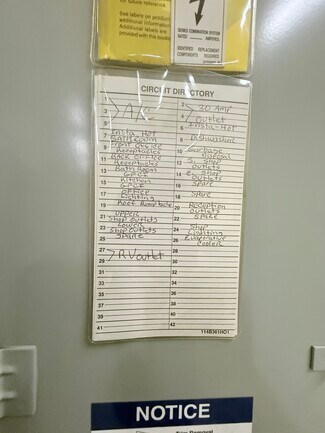 for future reference.
free labels on product
additional information
Additional labels are
provided with this loadc
SERIES COMBINATION SYSTEM
RATED AMPERES.
IDENTIFIED REPLACEMENT
COMPONENTS REQUIRED
CIRCUIT DIRECTORY
1 2
3 A/C 4 30 Amp
5 6 outlet
Insta-Hot
7 Insta. Hot 8 Dishwashers
Bathroom
9 Front office 10 Garbage
Receptacles disposal
11 Back office 12 S. shop
Receptacles outlets
13 Bathroom 14 E. shop
outlets
15 Kitchen 16 Spare
17 office 18 Spare
Lighting
19 Roof Receptacle 20 Reception
outlets
21 upper 22 Spare
Shop outlets
23 Lower 24 Shop
Shop outlets Lighting
25 Spare 26 Evaporative
Cooler
27 28
29 RV outlet 30
31 32
33 34
35 36
37 38
39 40
41 42
114B361HO1
NOTICE